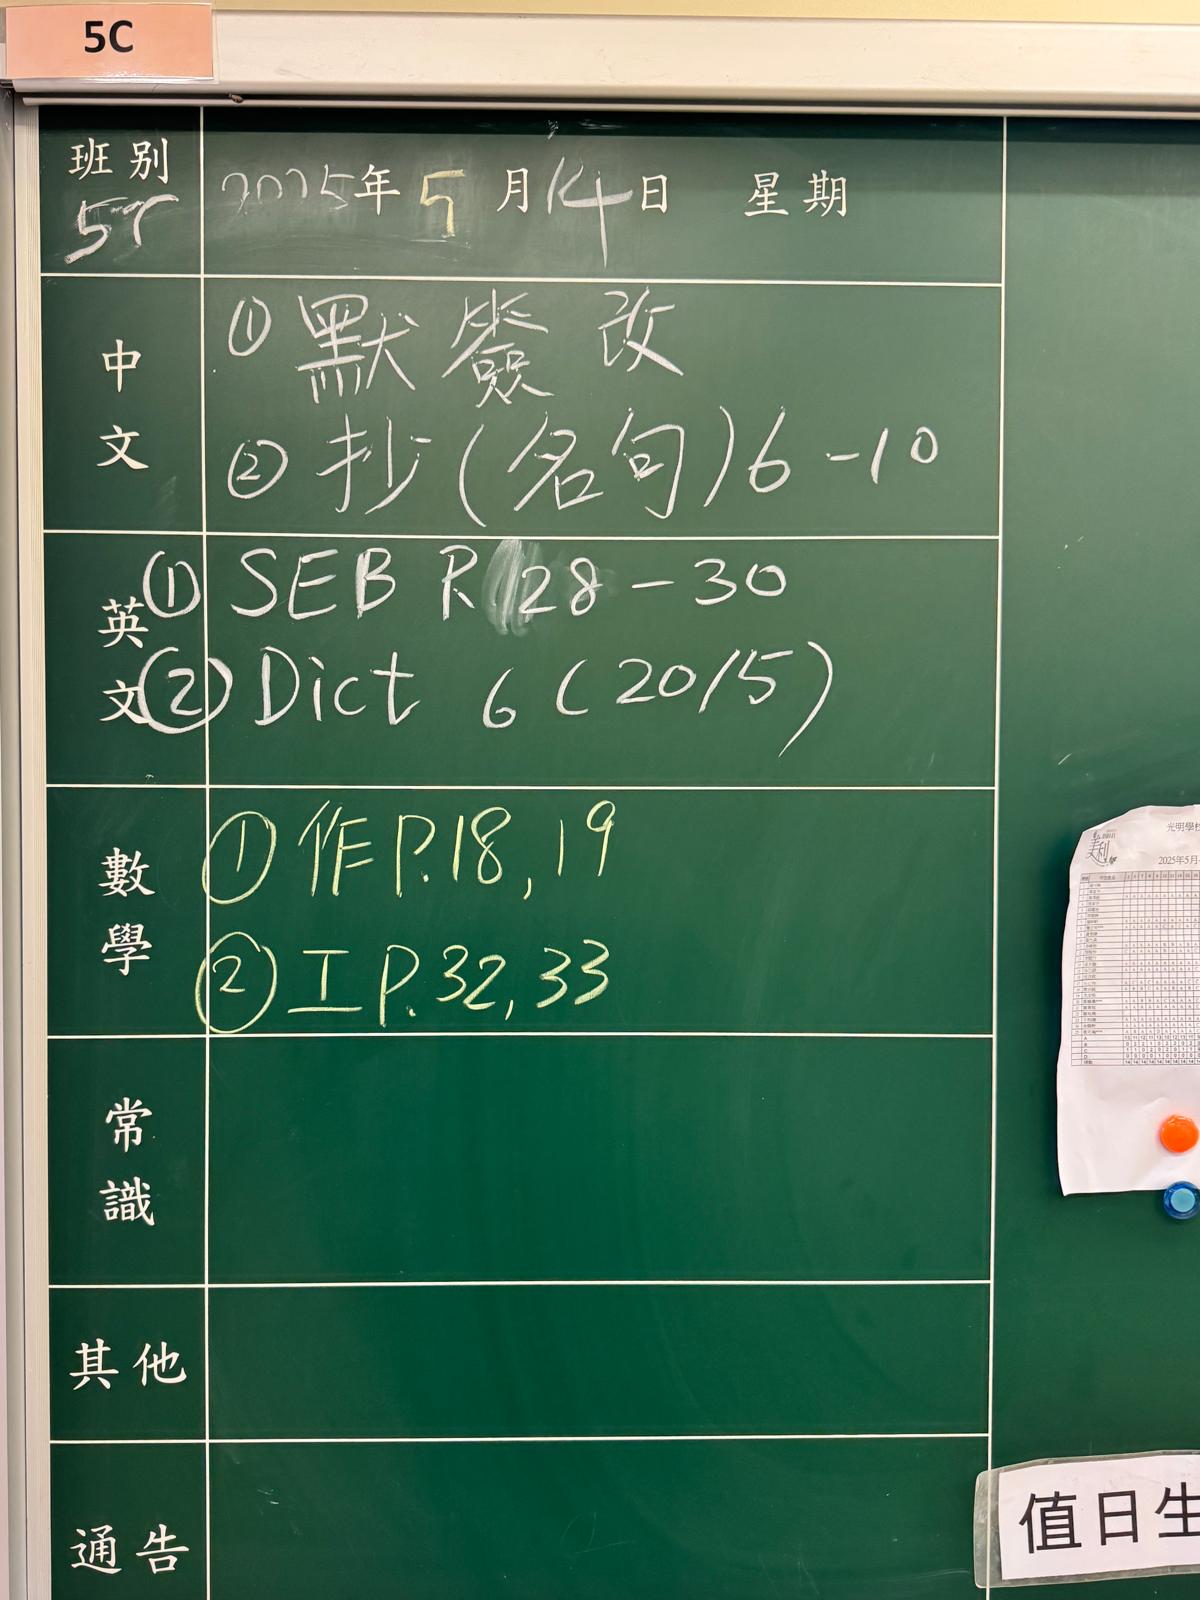 5C
班別
2025年 5 月 14 日 星期
中文
① 默簽改
② 抄(名句)6-10
英文
① SEB R 28-30
② Dict 6 (20/5)
數學
① 作 P.18, 19
② 工 P.32, 33
常識
其他
通告
光明學校
2025年5月
值日生